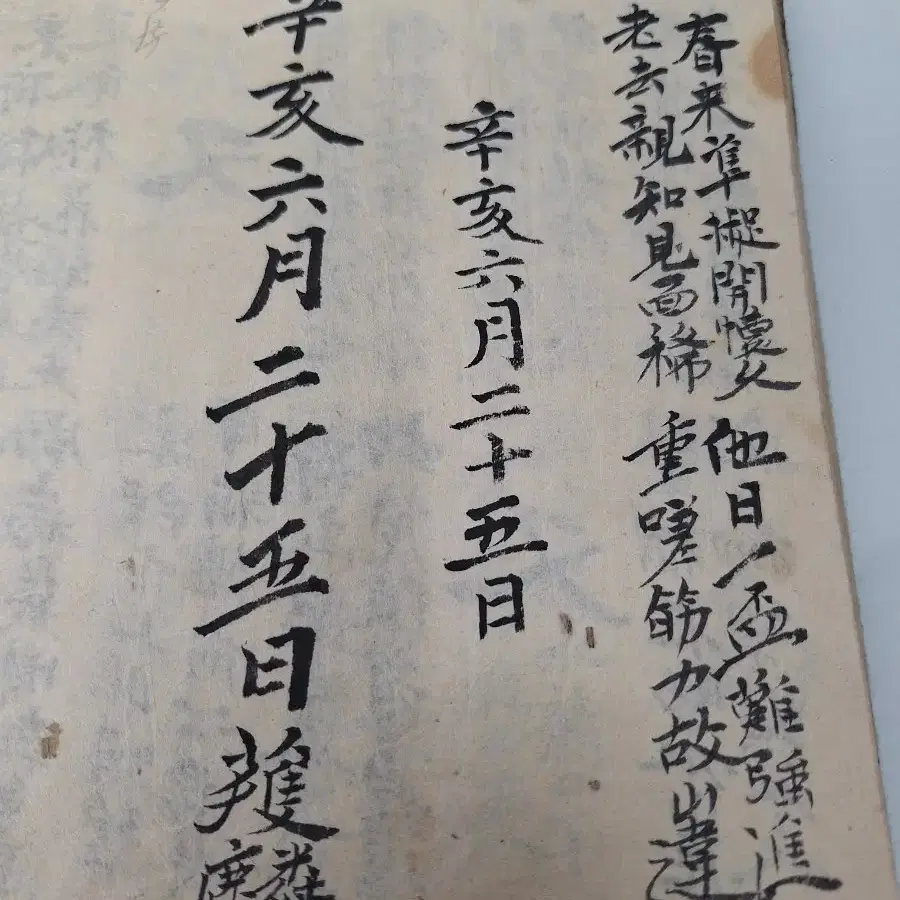 春来準擬開懷久 他日一盃難強進
老去親知見面稀 重嗟筋力故山違
辛亥六月二十五日
辛亥六月二十五日